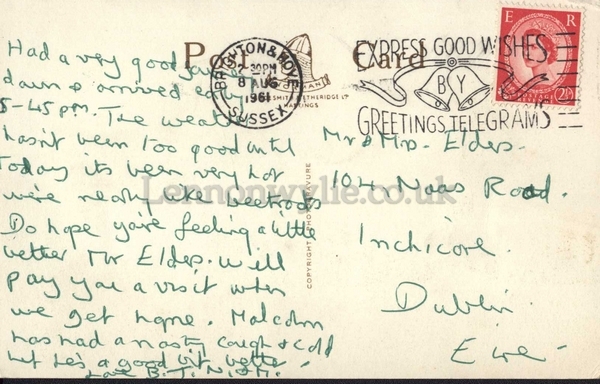 Had a very good journey
down & arrived early
5-45pm. The weather
hasn't been too good until
today its been very hot
we're nearly like beetroots
Do hope you're feeling a little
better Mr Elders. Will
pay you a visit when
we get home. Malcolm
has had a nasty cough & cold
but he's a good bit better
Love B. T. N & M.
Post Card
BRIGHTON & HOVE
2-30PM
8 AUG
1961
SUSSEX
EXPRESS GOOD WISHES
BY
GREETINGS TELEGRAMS
E R
2½D
HASTINGS
COPYRIGHT PHOTOGRAVURE
Mr & Mrs. Elders.
104 Naas Road.
Inchicore.
Dublin
Eire
Lennonwylie.co.uk